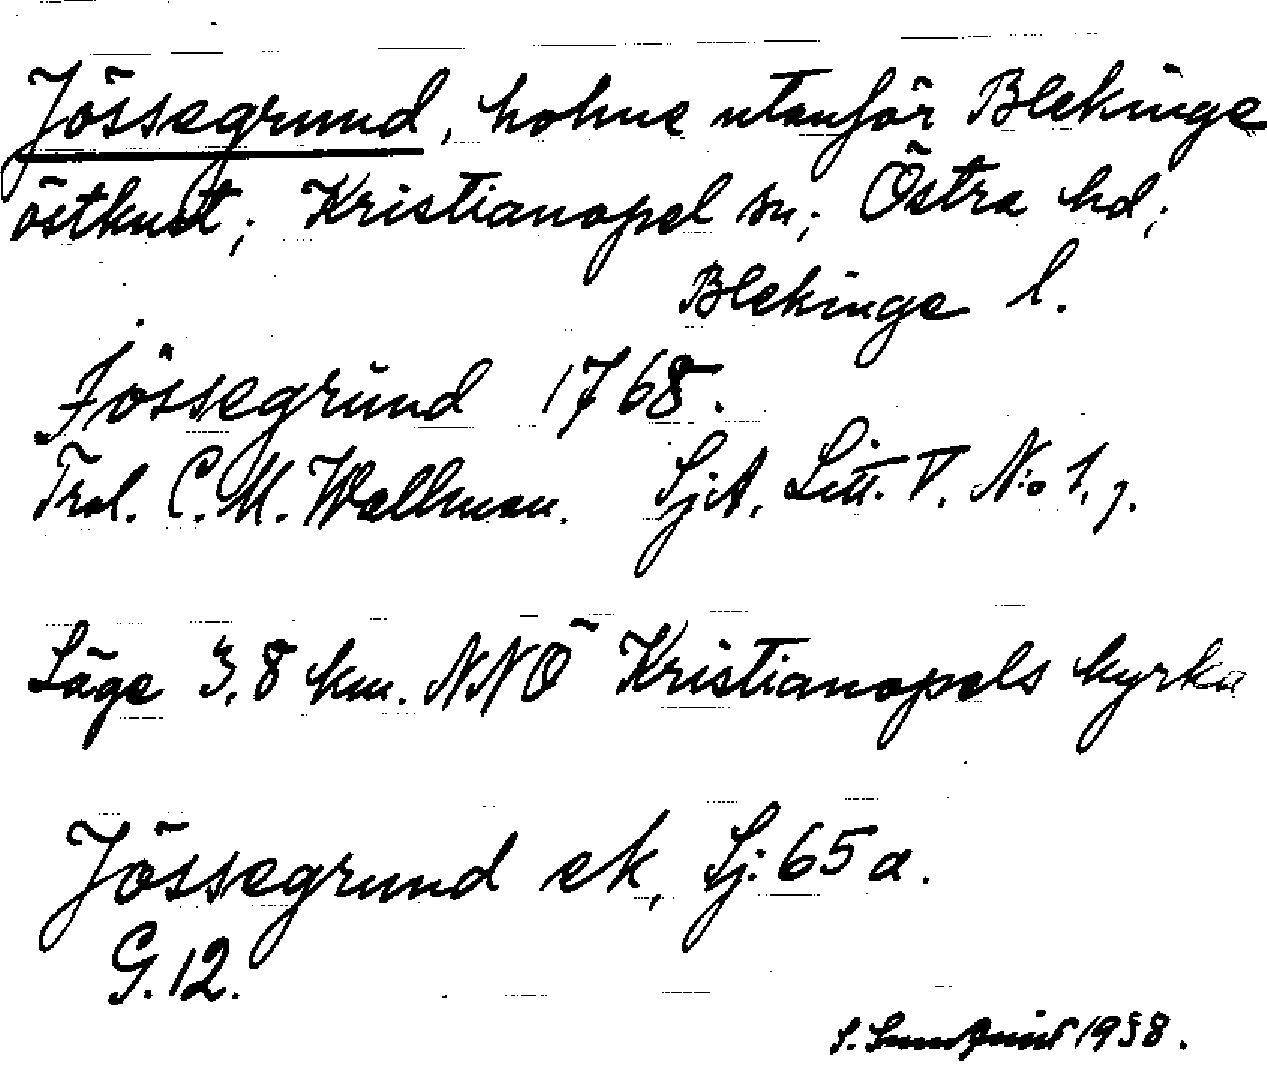 Jössegrund, holme utanför Blekinge
östkust; Kristianopel sn; Östra hd;
Blekinge l.
Jössegrund 1768.
Trol. C. M. Wallman. SjA. Litt. V. No 1. j.
Läge 3,8 km. NNÖ Kristianopels kyrka
Jössegrund ek, Sj: 65 a.
G. 12.
S. 1938.